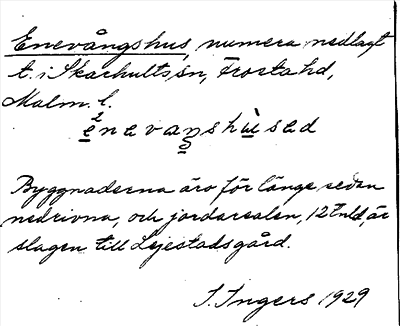 Enevångshus, numera nedlagt
t. i Skarhults sn, Frosta hd,
Malm. l.
ènevaŋshùsəd
Byggnaderna äro för länge sedan
nedrivna, och jordarealen, 12 tnld, är
slagen till Lejestadsgård.
I. Ingers 1929